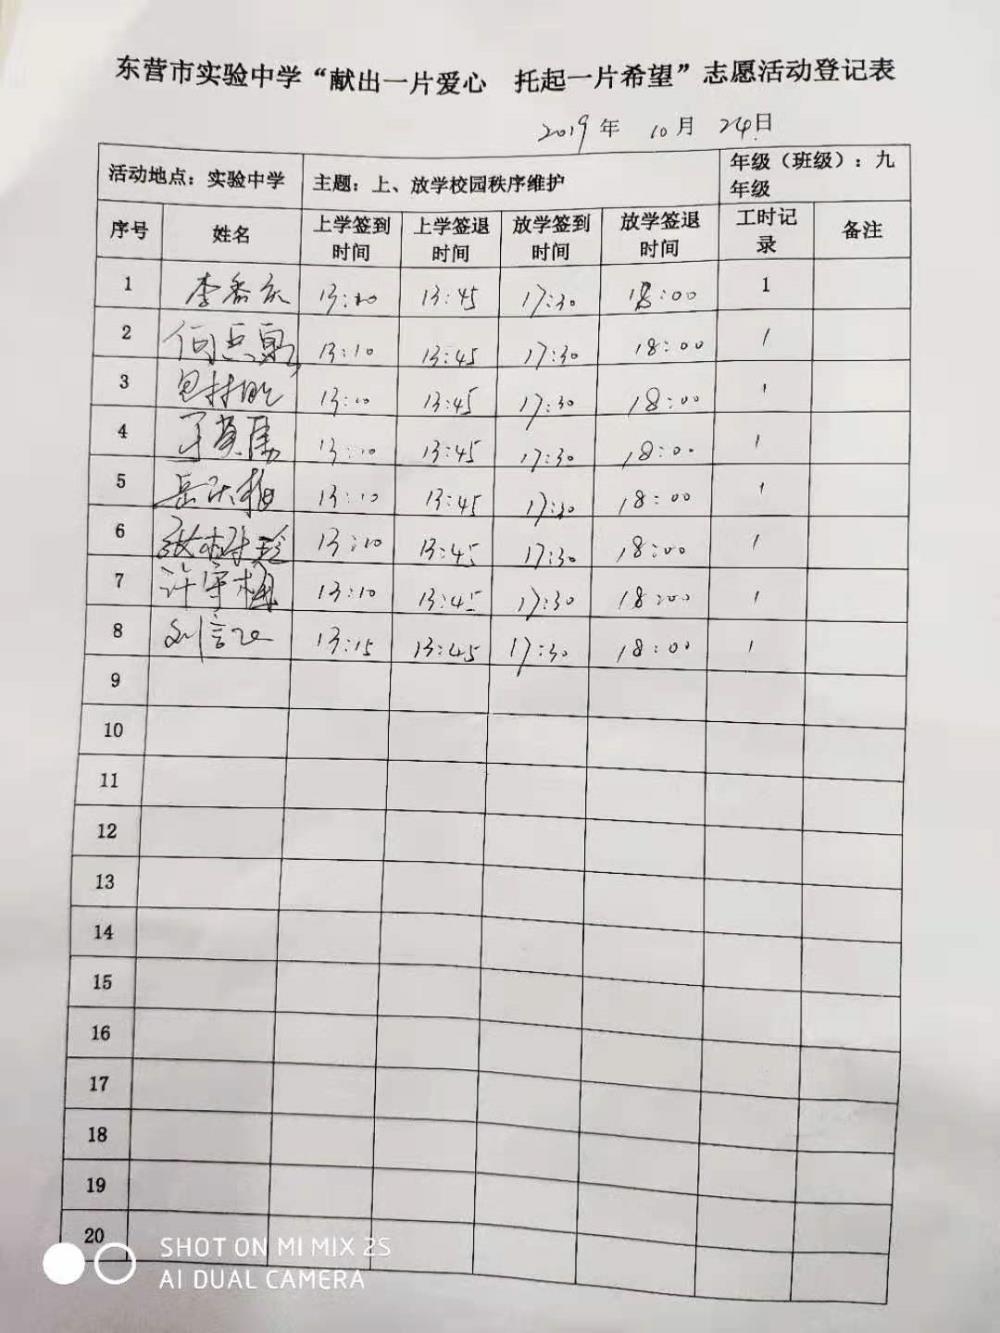 东营市实验中学“献出一片爱心 托起一片希望”志愿活动登记表
2019年 10月 24日
活动地点：实验中学 主题：上、放学校园秩序维护 年级（班级）：九年级
序号 姓名 上学签到时间 上学签退时间 放学签到时间 放学签退时间 工时记录 备注
1 13:45 17:30 18:00 1
2 13:10 13:45 17:30 18:00 1
3 13:10 13:45 17:30 18:00 1
4 13:10 13:45 17:30 18:00 1
5 13:10 13:45 17:30 18:00 1
6 13:10 13:45 17:30 18:00 1
7 13:10 13:45 17:30 18:00 1
8 13:15 13:45 17:30 18:00 1
9
10
11
12
13
14
15
16
17
18
19
20
SHOT ON MI MIX 2S
AI DUAL CAMERA